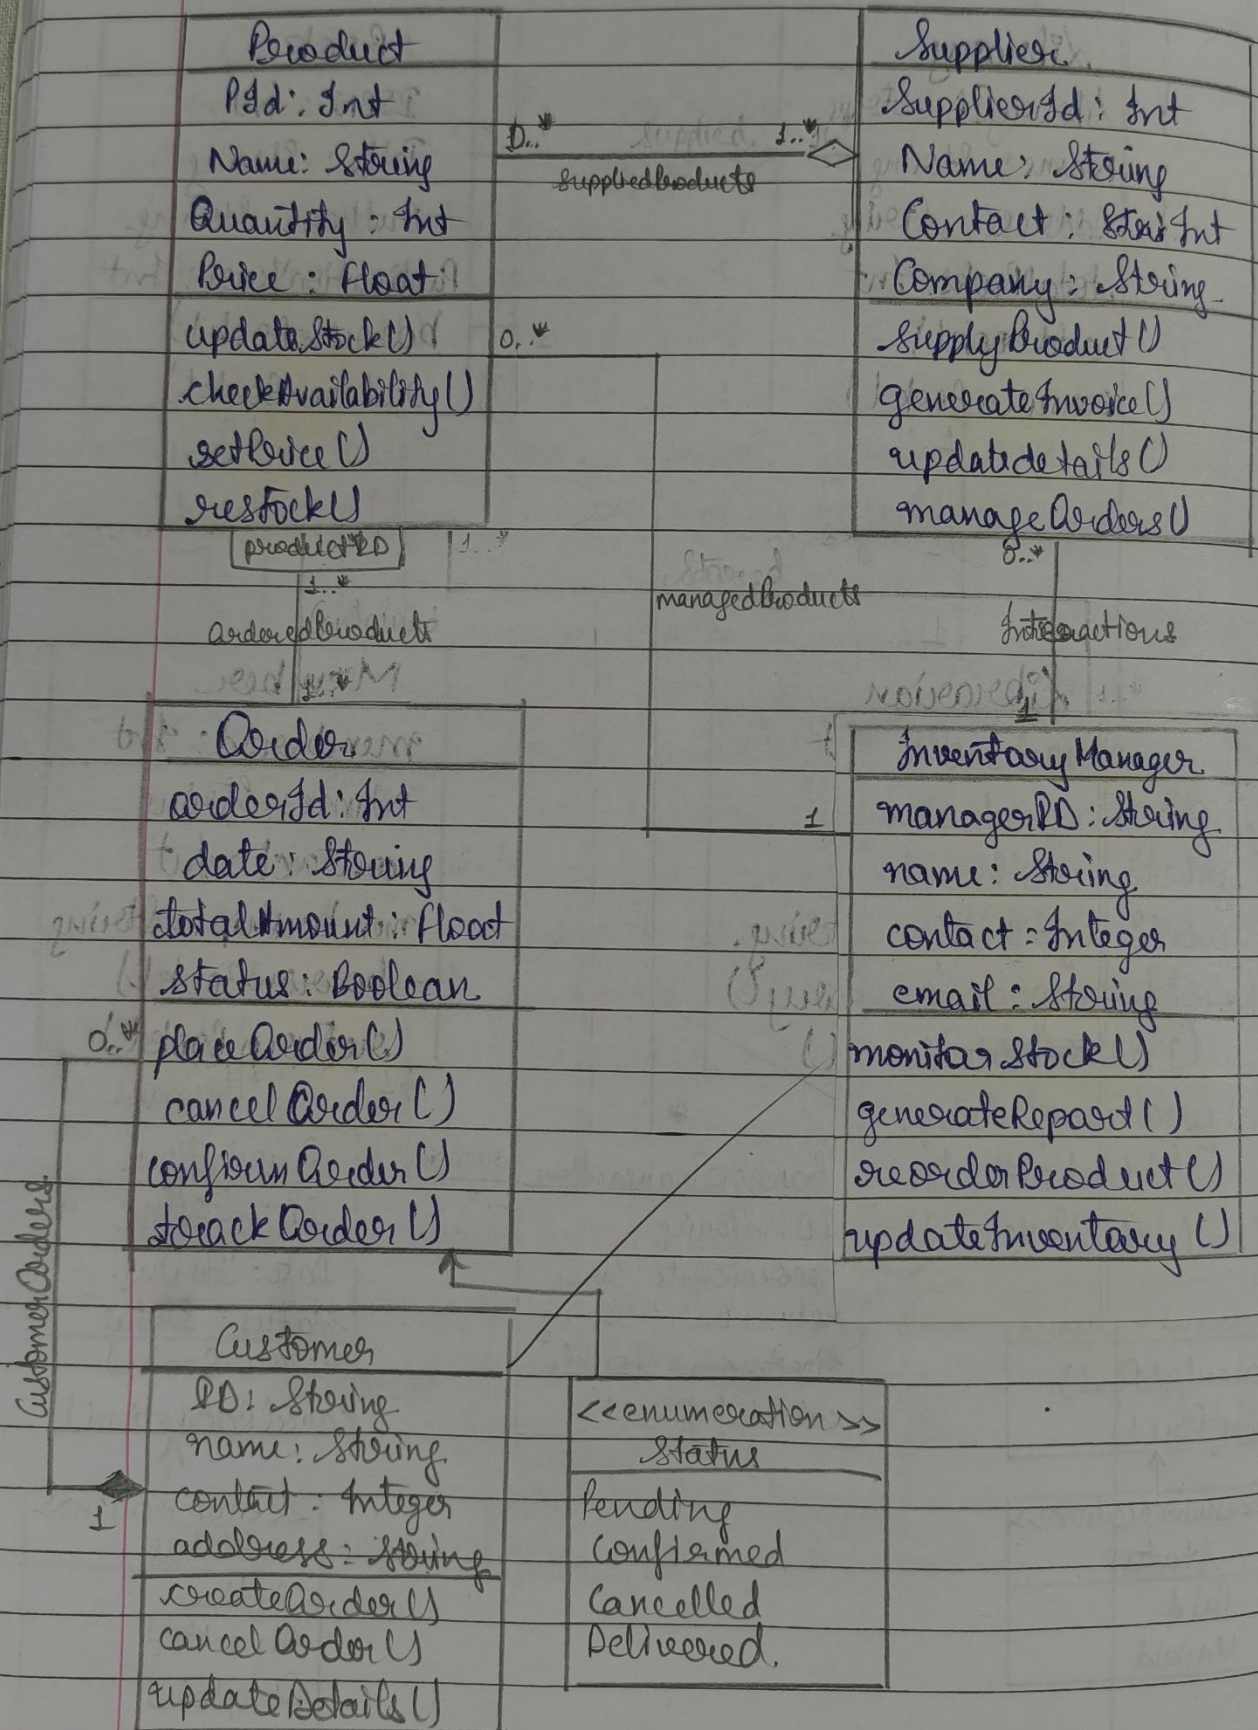 Product
PId: Int
Name: String
Quantity: Int
Price: Float
updateStock()
checkAvailability()
setPrice()
restock()
0..*
1..*
suppliedProducts
Supplier
SupplierId: Int
Name: String
Contact: Int
Company: String
supplyProduct()
generateInvoice()
updatedetails()
manageOrders()
0..*
managedProducts
1
productID
1..*
1..*
orderedProducts
1..*
0..*
Interactions
1
Order
orderId: Int
date: String
totalAmount: Float
status: Boolean
placeOrder()
cancelOrder()
confirmOrder()
trackOrder()
InventoryManager
managerID: String
name: String
contact: Integer
email: String
monitorStock()
generateReport()
reorderProduct()
updateInventory()
0..*
CustomerOrders
1
Customer
ID: String
name: String
contact: Integer
address: String
createOrder()
cancelOrder()
updateDetails()
<<enumeration>>
Status
Pending
Confirmed
Cancelled
Delivered.